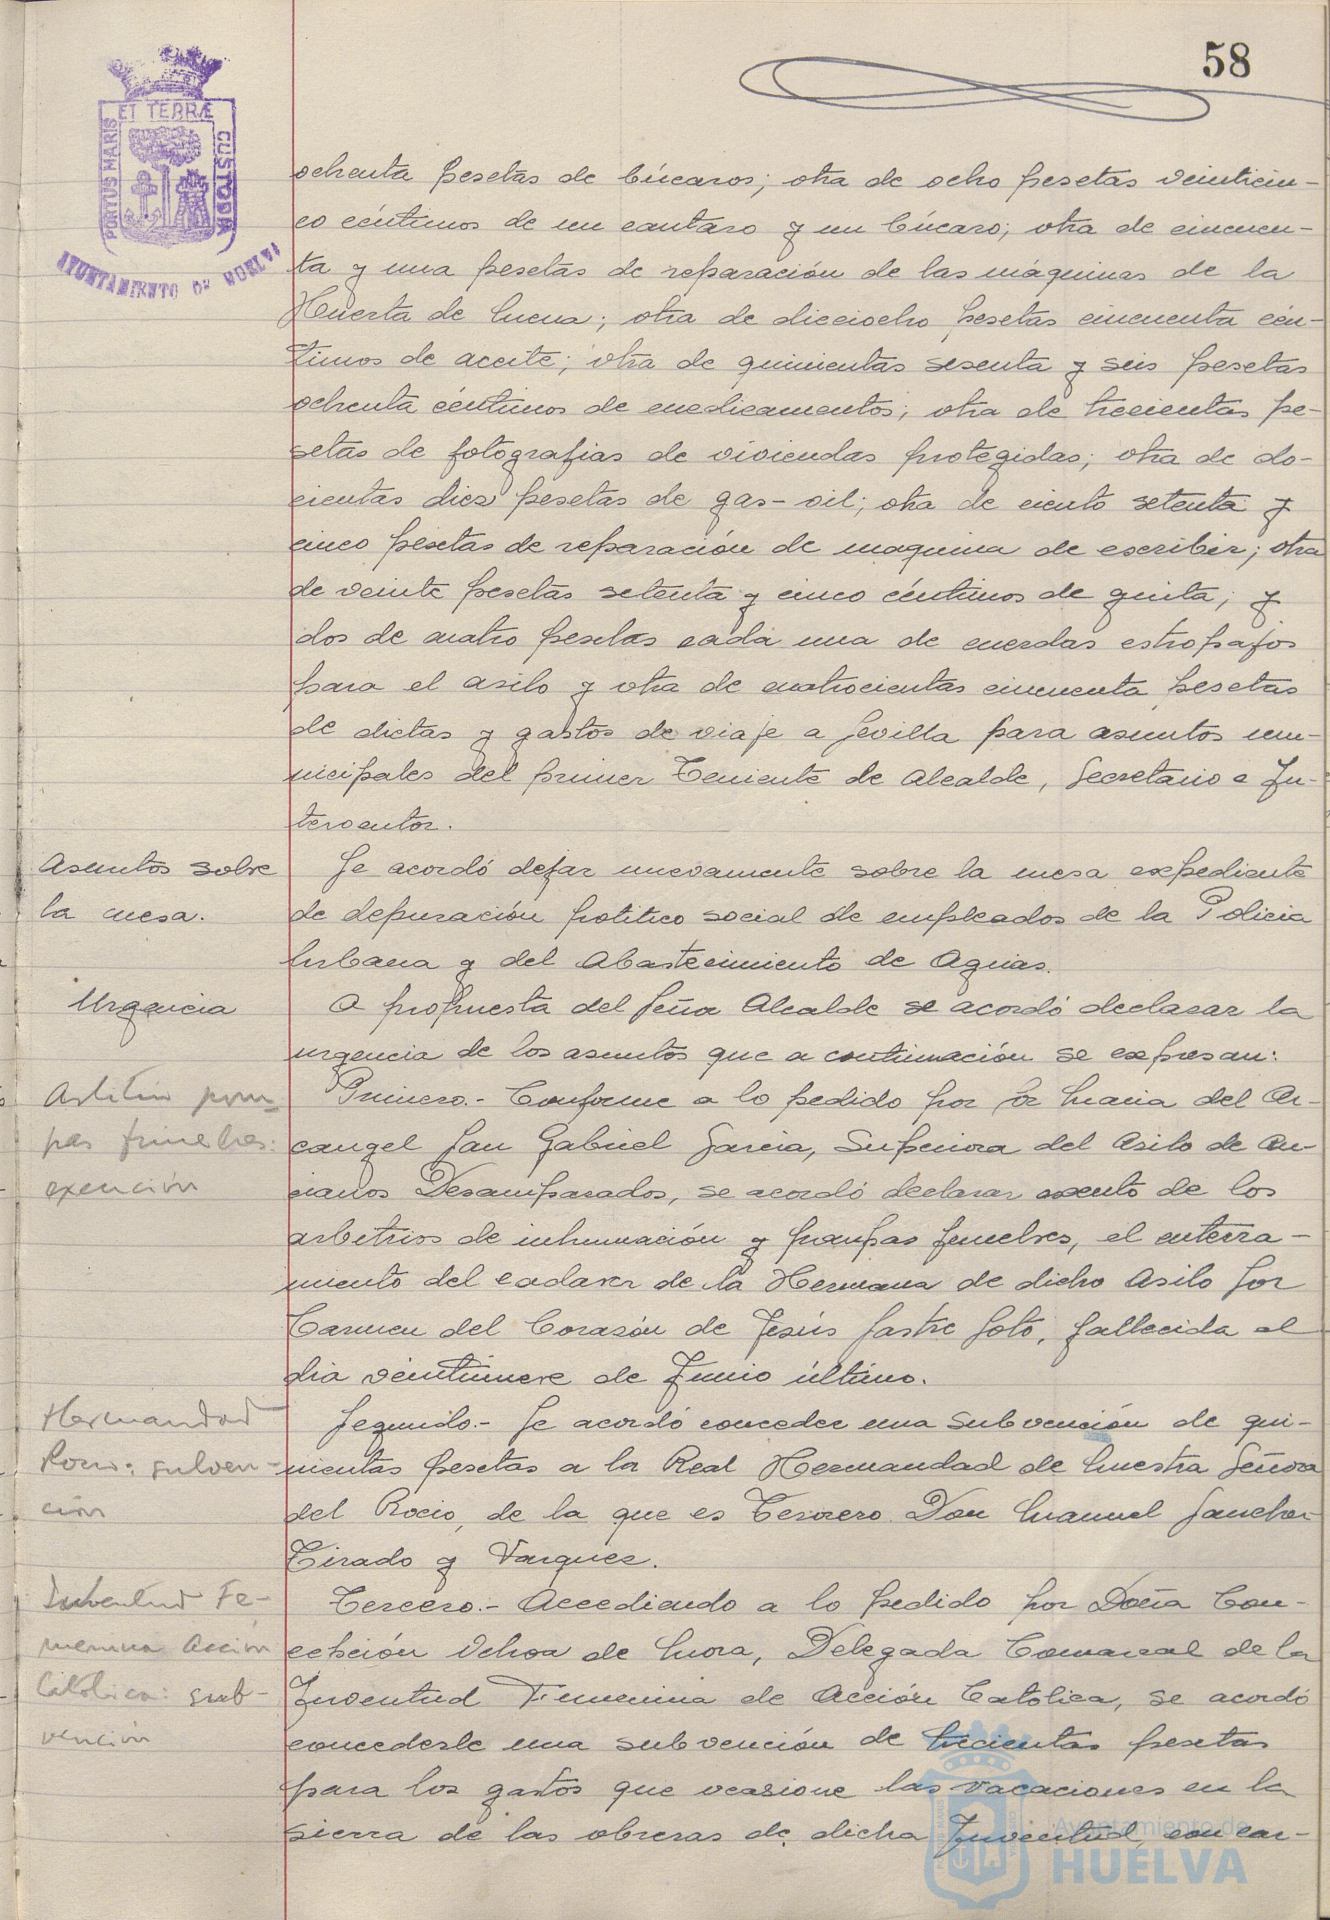 58
ET TERRÆ
PORTUS MARIS
CUSTODIA
AYUNTAMIENTO DE HUELVA
ochenta pesetas de búcaros; otra de ocho pesetas veinticin-
co céntimos de un cantaro y un búcaro; otra de cincuen-
ta y una pesetas de reparación de las máquinas de la
Huerta de Mena; otra de dieciocho pesetas cincuenta cén-
timos de aceite; otra de quinientas sesenta y seis pesetas
ochenta céntimos de medicamentos; otra de trecientas pe-
setas de fotografias de viviendas protegidas; otra de do-
cientas diez pesetas de gas-oil; otra de ciento setenta y
cinco pesetas de reparación de maquina de escribir; otra
de veinte pesetas setenta y cinco céntimos de guita; y
dos de cuatro pesetas cada una de cuerdas estropajos
para el asilo y otra de cuatrocientas cincuenta pesetas
de dietas y gastos de viaje a Sevilla para asuntos mu-
nicipales del primer Teniente de Alcalde, Secretario e In-
terventor.
Asuntos sobre
la mesa.
Se acordó dejar nuevamente sobre la mesa expediente
de depuración politico social de empleados de la Policia
Urbana y del Abastecimiento de Aguas.
Urgencia
A propuesta del Señor Alcalde se acordó declarar la
urgencia de los asuntos que a continuación se expresan:
Arbitrio pom-
pas funebres:
exención
Primero.- Conforme a lo pedido por Sor Maria del Ar-
cangel San Gabriel Garcia, Superiora del Asilo de An-
cianos Desamparados, se acordó declarar exento de los
arbitrios de inhumación y pompas funebres, el enterra-
miento del cadaver de la Hermana de dicho Asilo Sor
Carmen del Corazón de Jesús Sastre Soto, fallecida el
dia veintinueve de Junio último.
Hermandad
Rocio: subven-
ción
Segundo.- Se acordó conceder una subvención de qui-
nientas pesetas a la Real Hermandad de Nuestra Señora
del Rocio, de la que es Tesorero Don Manuel Sanchez-
Tirado y Vazquez.
Juventud Fe-
menina Acción
Católica: sub-
vención
Tercero.- Accediendo a lo pedido por Doña Con-
cepción Ochoa de Mora, Delegada Comarcal de la
Juventud Femenina de Acción Católica, se acordó
concederle una subvención de trecientas pesetas
para los gastos que ocasione las vacaciones en la
sierra de las obreras de dicha Juventud, con car-
Ayuntamiento de
HUELVA